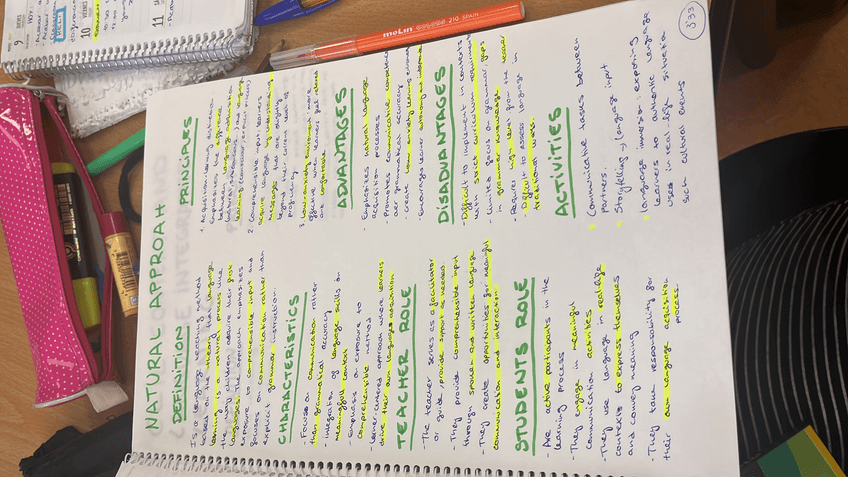 NATURAL APPROAH
DEFINITION
Is a language teaching method
based on the theory that language
learning is a natural process like
the way children acquire their first
languages. The approach emphasizes
exposure to comprehensible input and
focuses on communication rather than
explicit grammar instruction.
CHARACTERISTICS
- Focuses on communication rather
than grammatical accuracy
- Integration of language skills on
meaningfull context
- Emphasis on exposure to
comprehensible method
- Learner-centered approach where learners
drive their own language acquisition
TEACHER ROLE
- The teacher serves as a facilitator
or guide, provide support as needed.
- They provide comprehensible input
through spoken and written language
- They create opportunities for meaningful
communication and interaction
STUDENTS ROLE
- Are active participants in the
learning process
- They engage in meaningful
communication activities
- They use language in real-life
contexts to express themselves
and convey meaning
- They take responsibility for
their own language acquisition
process.
PRINCIPLES
1. Acquisition-learning
Emphasizes the
between language acquisition
learning
2. Comprehensible input: learners
acquire language by understanding
messages that are slightly
beyond their current level of
proficiency
3. Low-anxiety environment more
effective when learners feel relaxed
and comfortable
ADVANTAGES
- Emphasizes natural language
acquisition processes
- Promotes communicative competence
over grammatical accuracy
- Create low-anxiety learning
- Encourages learner autonomy and
DISADVANTAGES
- Difficult to implement in contexts
with strict curriculum requirements
- Limited focus on grammar, gaps
in grammar knowledge
- Requires high level from the teacher
- Difficult to assess language in
traditional ways.
ACTIVITIES
Communicative tasks between
partners.
Storytelling → language input
Language immersion exposing
learners to authentic language
uses in real-life situation
such cultural events
3'33
molin
210 SPAIN
9
10
11